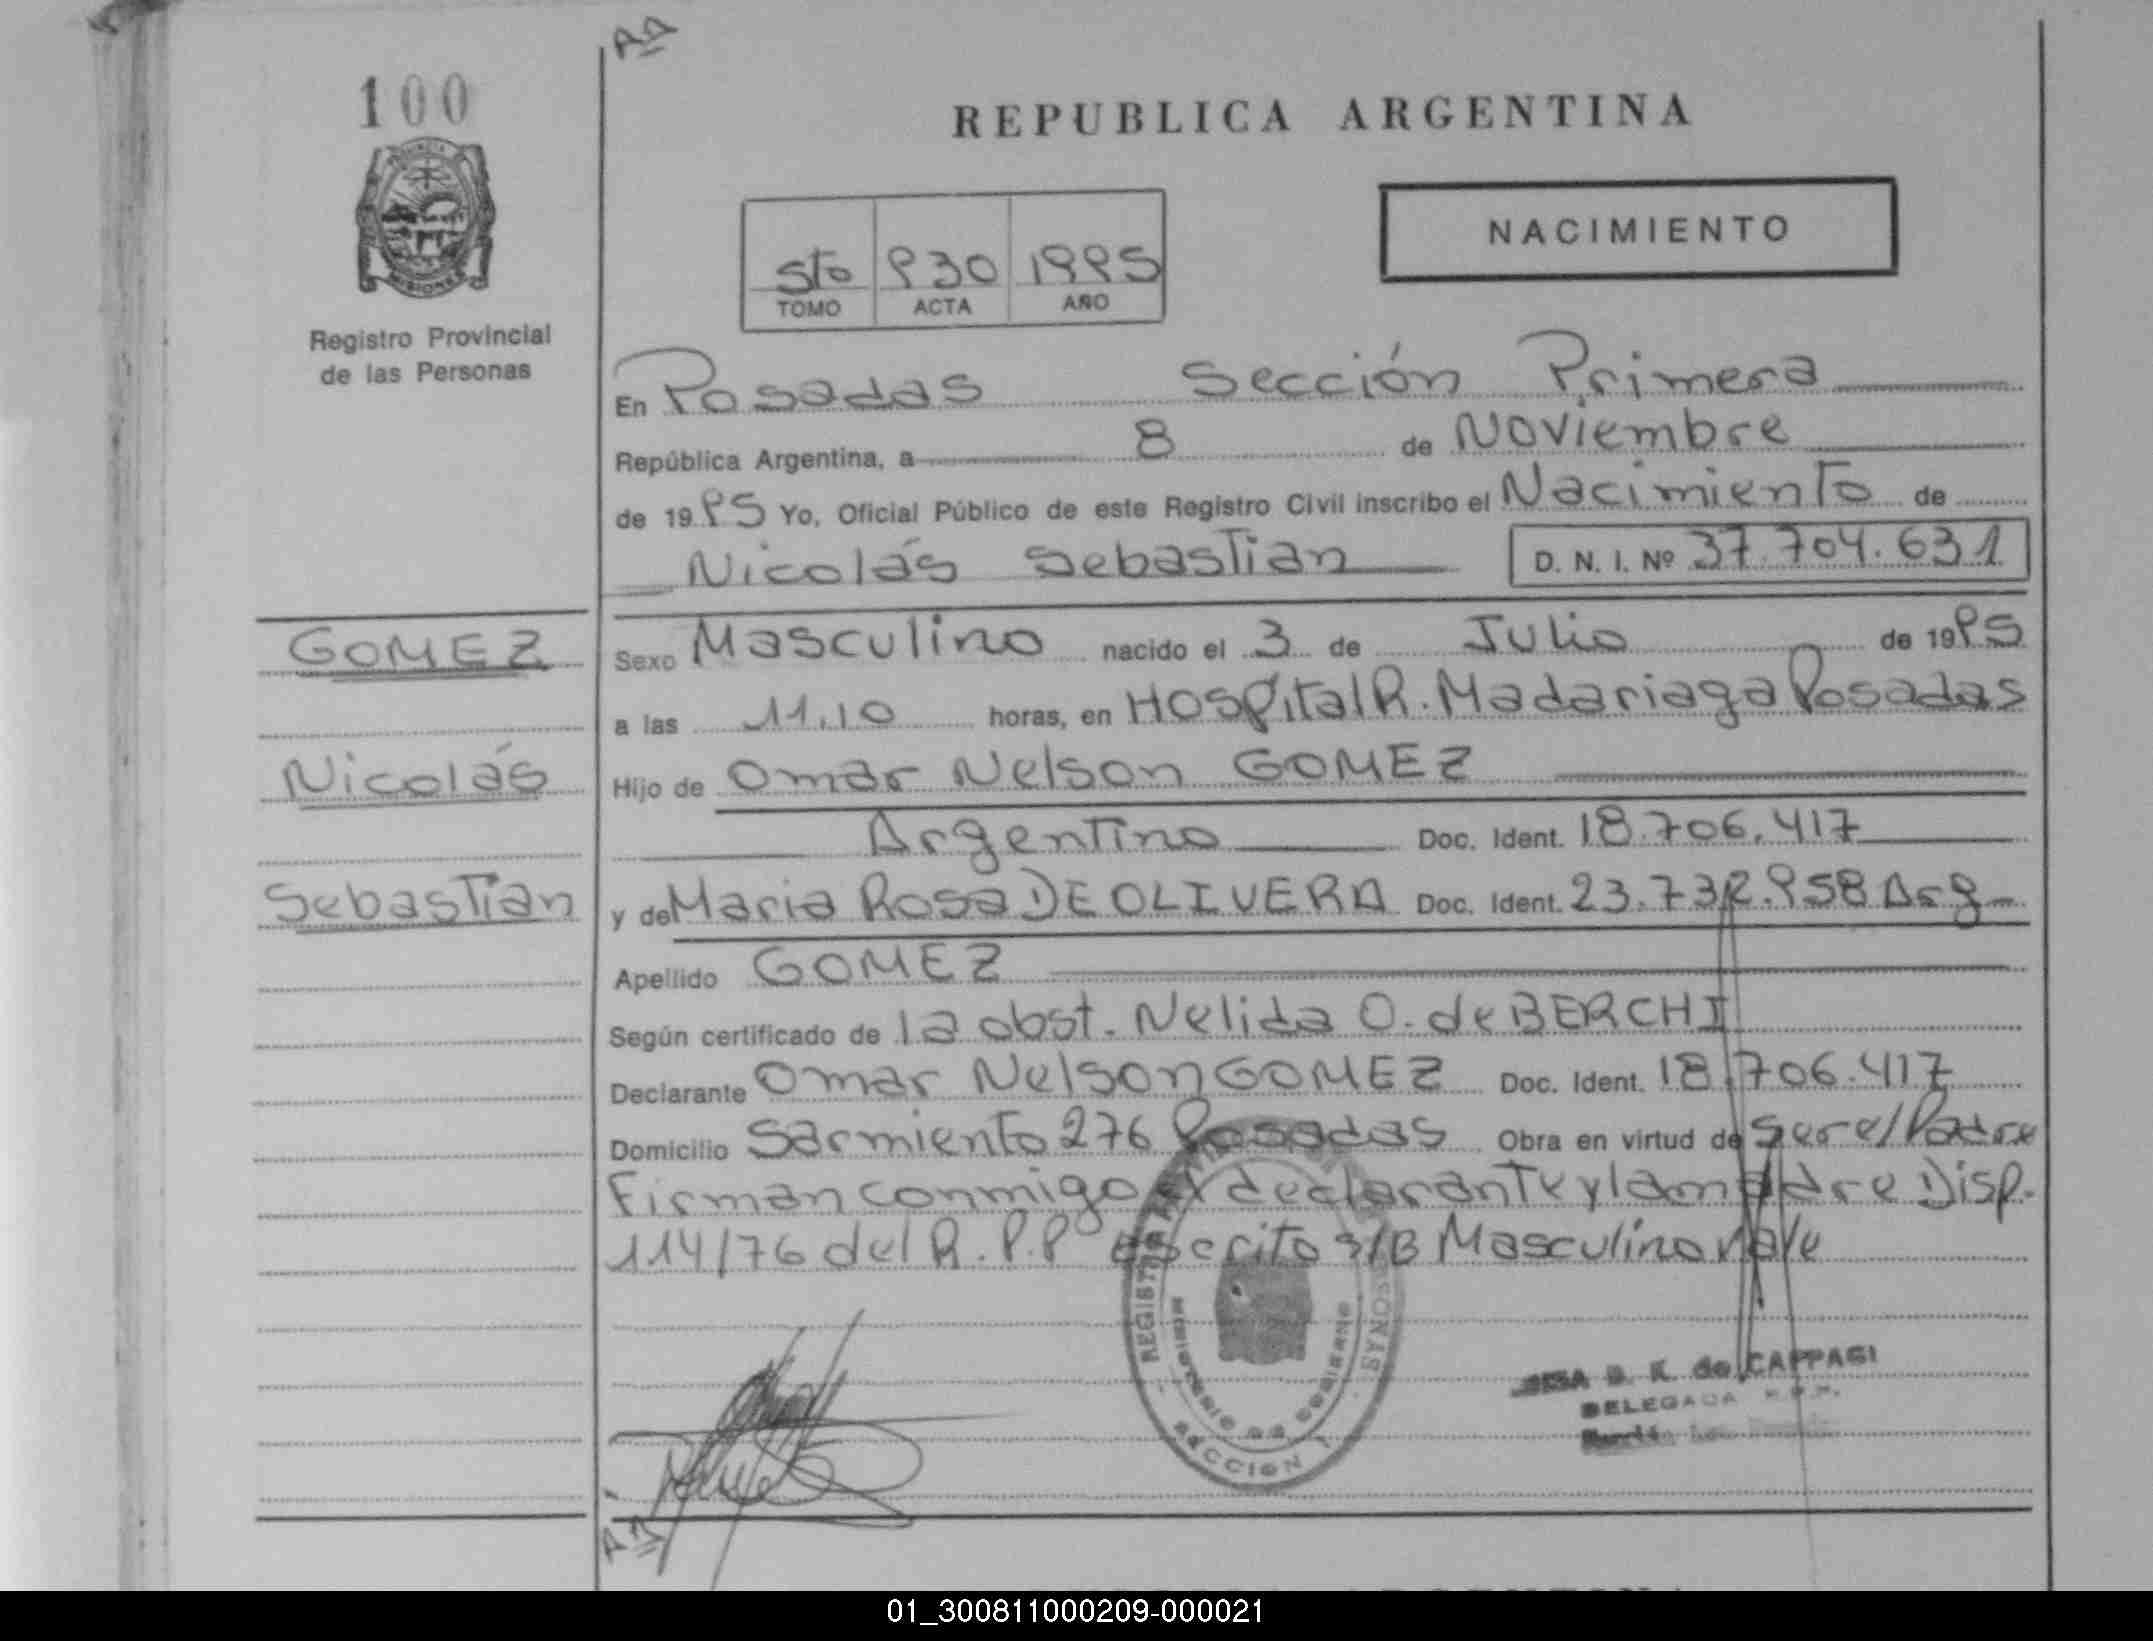 100
REPUBLICA ARGENTINA
NACIMIENTO
5to 930 1995
TOMO ACTA AÑO
Registro Provincial
de las Personas
En Posadas Sección Primera
República Argentina, a 8 de Noviembre
de 1995 Yo, Oficial Público de este Registro Civil inscribo el Nacimiento de
Nicolás Sebastian D. N. I. Nº 37.704.631
GOMEZ
Nicolás
Sebastian
Sexo Masculino nacido el 3 de Julio de 1995
a las 11,10 horas, en Hospital R. Madariaga Posadas
Hijo de Omar Nelson GOMEZ
Argentino Doc. Ident. 18.706.417
y de Maria Rosa DE OLIVERA Doc. Ident. 23.732.958 Arg
Apellido GOMEZ
Según certificado de la obst. Nelida O. de BERCHI
Declarante Omar Nelson GOMEZ Doc. Ident. 18.706.417
Domicilio Sarmiento 276 Posadas Obra en virtud de ser el Padre
Firman conmigo el declarante y la madre Disp.
114/76 del R.P.P Escrito s/B Masculino vale
MINISTERIO DE GOBIERNO
SECCION 1
B. K. de CAPPAGI
DELEGADA R.P.P.
01_300811000209-000021